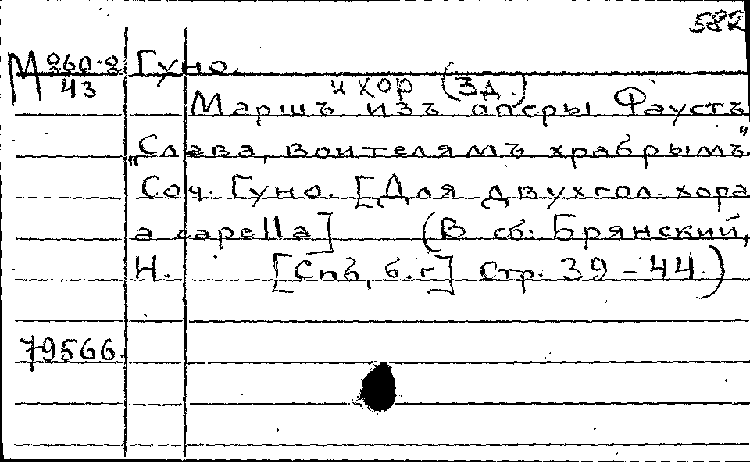 582
М 260-2/43 Гуно.
и хор (3 д.)
Маршъ изъ оперы Фаустъ
„Слава, воителямъ храбрымъ"
Соч. Гуно. [Для двухгол. хора
a capella] (В сб: Брянский,
Н. [Спб, б.г] Стр. 39-44.)
79566.